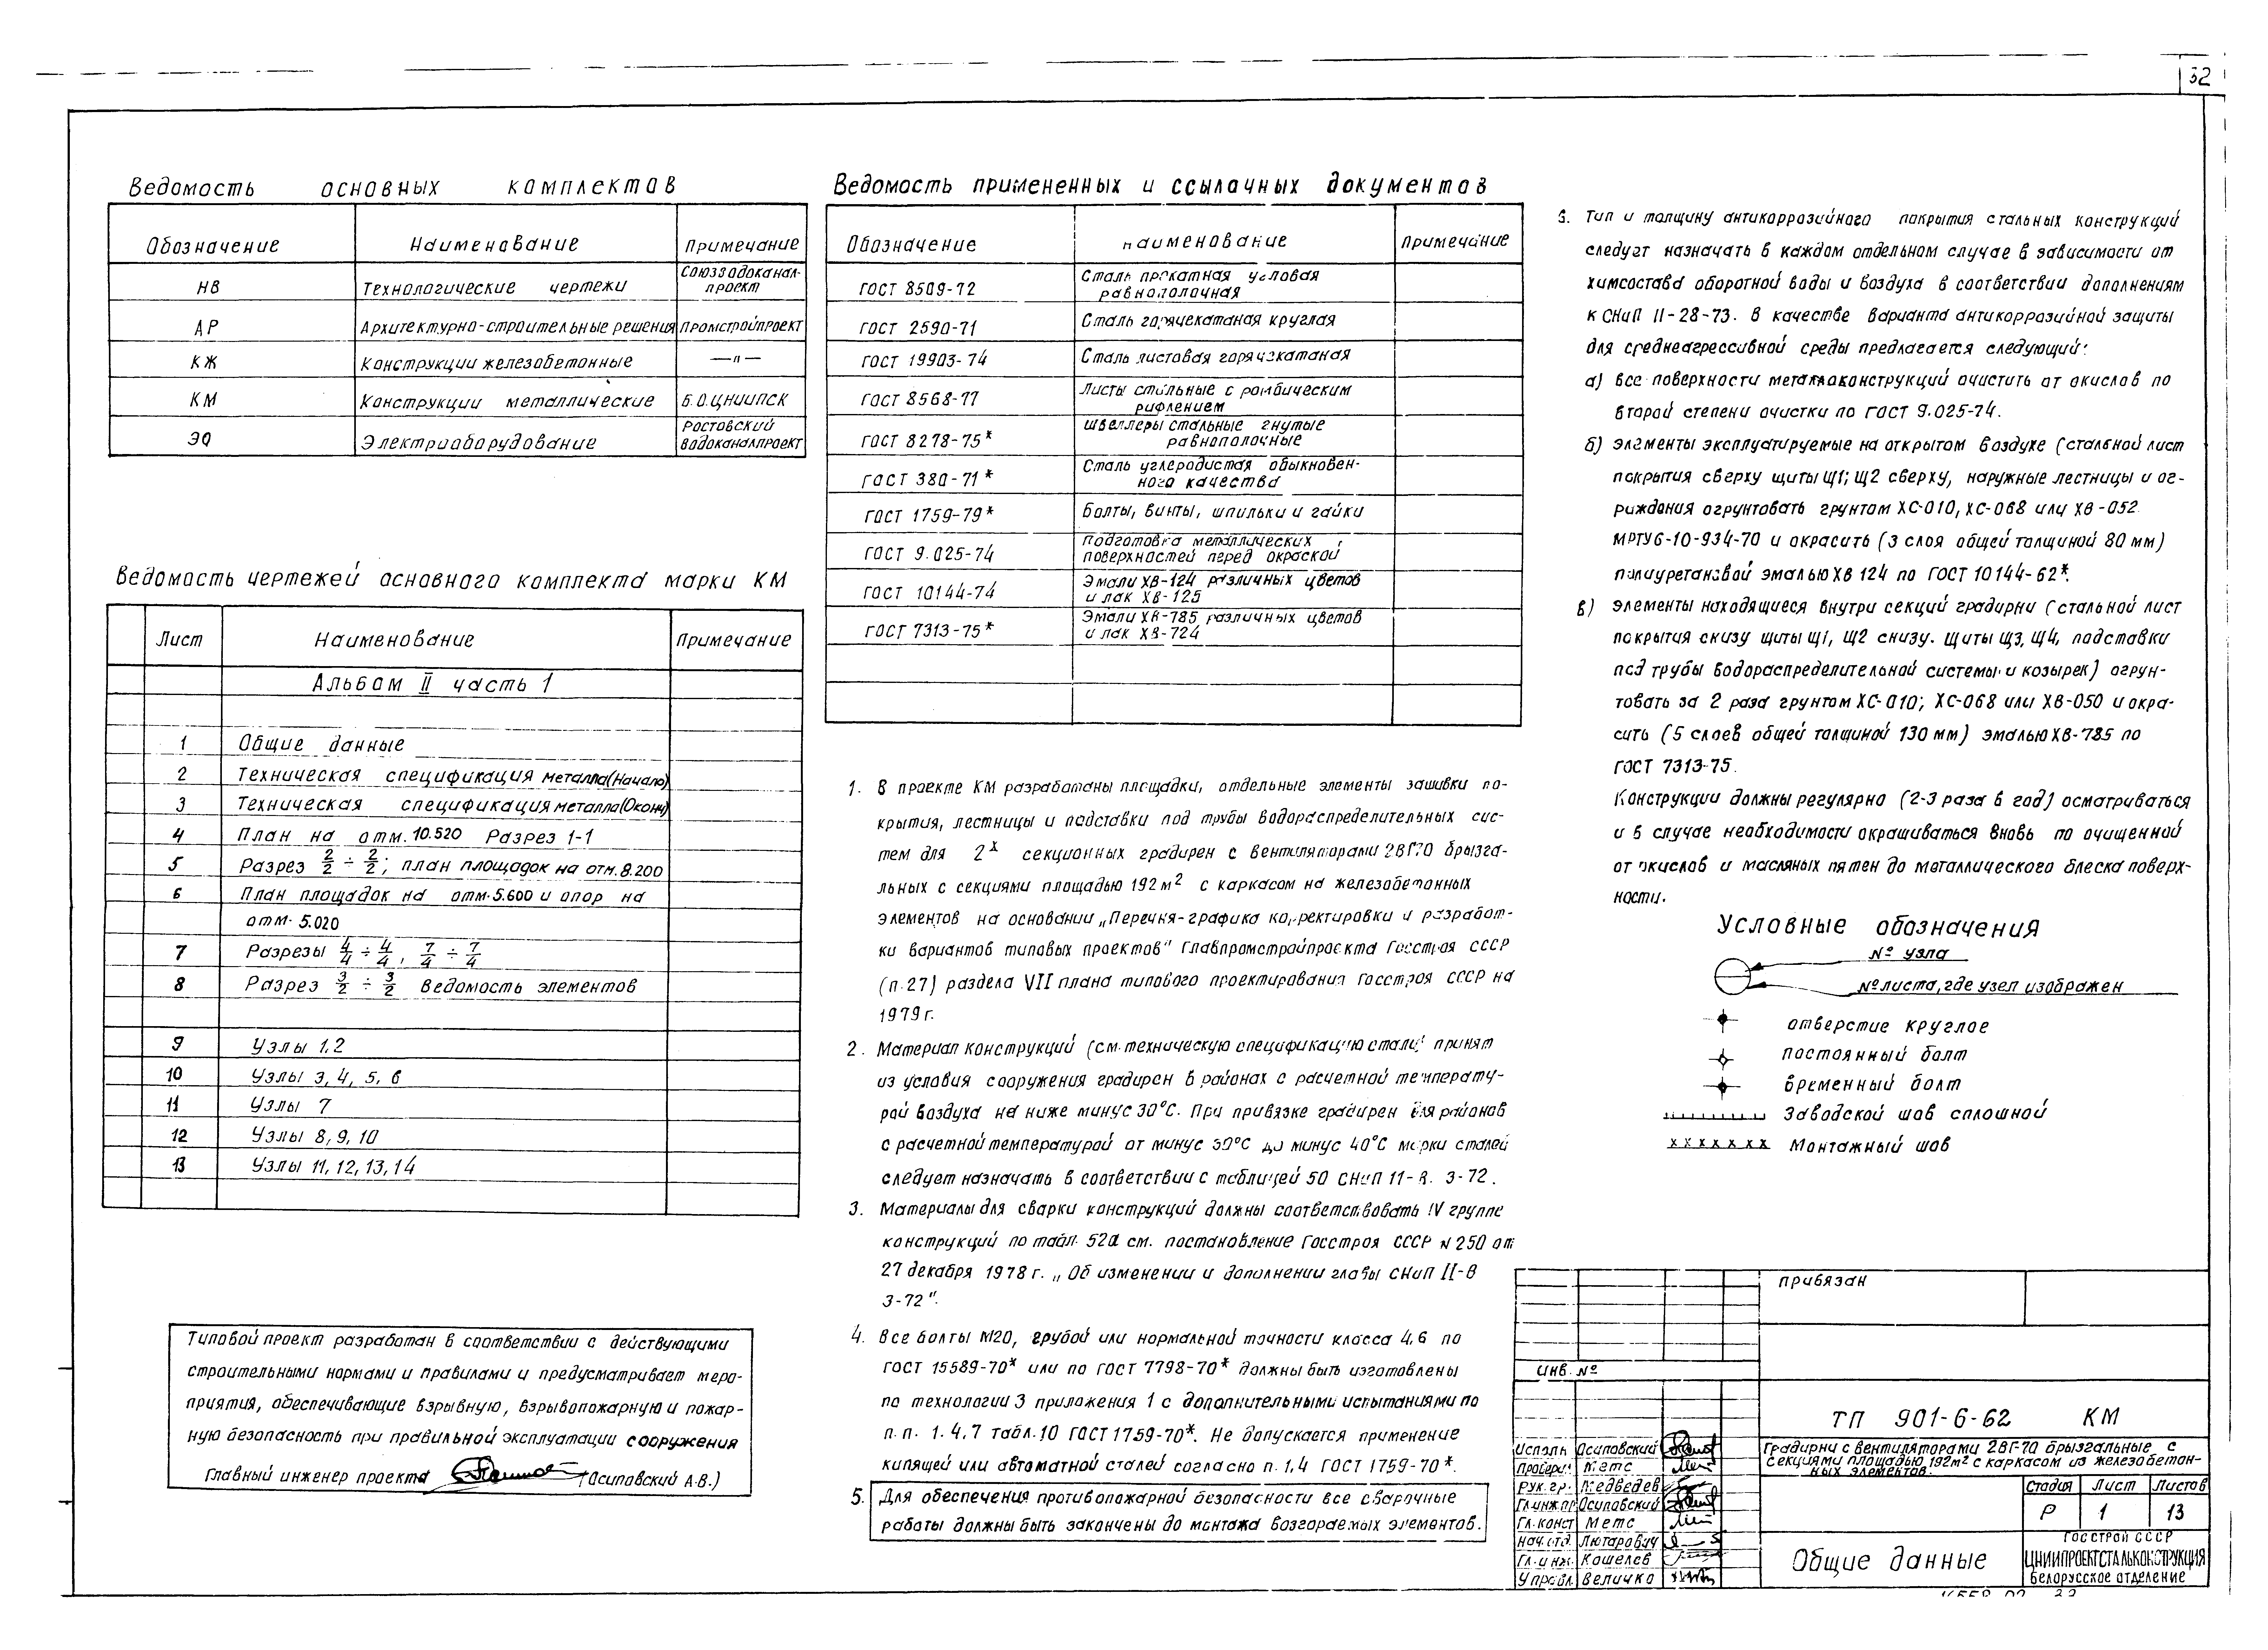 32
Ведомость основных комплектов
Обозначение Наименование Примечание
НВ Технологические чертежи Союзводоканал-
проект
АР Архитектурно-строительные решения Промстройпроект
КЖ Конструкции железобетонные —"—
КМ Конструкции металлические Б.О.ЦНИИПСК
ЭО Электрооборудование Ростовский
водоканалпроект
Ведомость чертежей основного комплекта марки КМ
Лист Наименование Примечание
Альбом II часть 1
1 Общие данные
2 Техническая спецификация металла (Начало)
3 Техническая спецификация металла (Оконч)
4 План на отм. 10.520 Разрез 1-1
5 Разрез 2/2 ÷ 2/2; план площадок на отм. 8.200
6 План площадок на отм. 5.600 и опор на
отм. 5.020
7 Разрезы 4/4 ÷ 4/4, 7/4 ÷ 7/4
8 Разрез 3/2 ÷ 3/2 Ведомость элементов
9 Узлы 1,2
10 Узлы 3, 4, 5, 6
11 Узлы 7
12 Узлы 8, 9, 10
13 Узлы 11, 12, 13, 14
Типовой проект разработан в соответствии с действующими
строительными нормами и правилами и предусматривает меро-
приятия, обеспечивающие взрывную, взрывопожарную и пожар-
ную безопасность при правильной эксплуатации сооружения
Главный инженер проекта (Осиповский А.В.)
Ведомость примененных и ссылочных документов
Обозначение Наименование Примечание
ГОСТ 8509-72 Сталь прокатная угловая
равнополочная
ГОСТ 2590-71 Сталь горячекатаная круглая
ГОСТ 19903-74 Сталь листовая горячекатаная
ГОСТ 8568-77 Листы стальные с ромбическим
рифлением
ГОСТ 8278-75* Швеллеры стальные гнутые
равнополочные
ГОСТ 380-71* Сталь углеродистая обыкновен-
ного качества
ГОСТ 1759-79* Болты, винты, шпильки и гайки
ГОСТ 9.025-74 Подготовка металлических
поверхностей перед окраской
ГОСТ 10144-74 Эмали ХВ-124 различных цветов
и лак ХВ-125
ГОСТ 7313-75* Эмали ХВ-785 различных цветов
и лак ХВ-724
1. В проекте КМ разработаны площадки, отдельные элементы зашивки по-
крытия, лестницы и подставки под трубы водораспределительных сис-
тем для 2х секционных градирен с вентиляторами 2ВГ70 брызга-
льных с секциями площадью 192 м² с каркасом на железобетонных
элементов на основании „Перечня-графика корректировки и разработ-
ки вариантов типовых проектов" Главпромстройпроекта Госстроя СССР
(п.27) раздела VII плана типового проектирования Госстроя СССР на
1979 г.
2. Материал конструкций (см. техническую спецификацию стали) принят
из условия сооружения градирен в районах с расчетной температу-
рой воздуха на ниже минус 30°С. При привязке градирен для районов
с расчетной температурой от минус 30°С до минус 40°С марки сталей
следует назначать в соответствии с таблицей 50 СНиП 11-В. 3-72.
3. Материалы для сварки конструкций должны соответствовать IV группе
конструкций по табл. 52а см. постановление Госстроя СССР N 250 от
27 декабря 1978 г. „Об изменении и дополнении главы СНиП II-В
3-72".
4. Все болты М20, грубой или нормальной точности класса 4,6 по
ГОСТ 15589-70* или по ГОСТ 7798-70* должны быть изготовлены
по технологии 3 приложения 1 с дополнительными испытаниями по
п.п. 1.4,7 табл.10 ГОСТ 1759-70*. Не допускается применение
кипящей или автоматной сталей согласно п. 1,4 ГОСТ 1759-70*.
5. Для обеспечения противопожарной безопасности все сварочные
работы должны быть закончены до монтажа возгораемых элементов.
6. Тип и толщину антикоррозийного покрытия стальных конструкций
следует назначать в каждом отдельном случае в зависимости от
химсостава оборотной воды и воздуха в соответствии дополнениям
к СНиП II-28-73. В качестве варианта антикоррозийной защиты
для среднеагрессивной среды предлагается следующий:
а) все поверхности металлоконструкций очистить от окислов по
второй степени очистки по ГОСТ 9.025-74.
б) элементы эксплуатируемые на открытом воздухе (стальной лист
покрытия сверху щиты Щ1; Щ2 сверху, наружные лестницы и ог-
риждения огрунтовать грунтом ХС-010, ХС-068 или ХВ-052
МРТУ6-10-934-70 и окрасить (3 слоя общей толщиной 80 мм)
полиуретановой эмалью ХВ 124 по ГОСТ 10144-62*.
в) элементы находящиеся внутри секций градирни (стальной лист
покрытия снизу щиты Щ1, Щ2 снизу. Щиты Щ3, Щ4, подставки
под трубы водораспределительной системы и козырек) огрун-
товать за 2 раза грунтом ХС-010; ХС-068 или ХВ-050 и окра-
сить (5 слоев общей толщиной 130 мм) эмалью ХВ-785 по
ГОСТ 7313-75.
Конструкции должны регулярно (2-3 раза в год) осматриваться
и в случае необходимости окрашиваться вновь по очищенной
от окислов и масляных пятен до металлического блеска поверх-
ности.
Условные обозначения
№ узла
№ листа, где узел изображен
отверстие круглое
постоянный болт
временный болт
Заводской шов сплошной
Монтажный шов
Привязан
Инв. №
ТП 901-6-62 КМ
Исполн Осиповский
Провери Метс
Рук.гр. Медведев
Гл.инж.пр Осиповский
Гл.конст Метс
Нач.отд. Лютарович
Гл.инж. Кошелев
Управл. Величко
Градирни с вентиляторами 2ВГ-70 брызгальные с
секциями площадью 192м² с каркасом из железобетон-
ных элементов.
Стадия Лист Листов
Р 1 13
Общие данные
ГОССТРОЙ СССР
ЦНИИПРОЕКТСТАЛЬКОНСТРУКЦИЯ
БЕЛОРУССКОЕ ОТДЕЛЕНИЕ